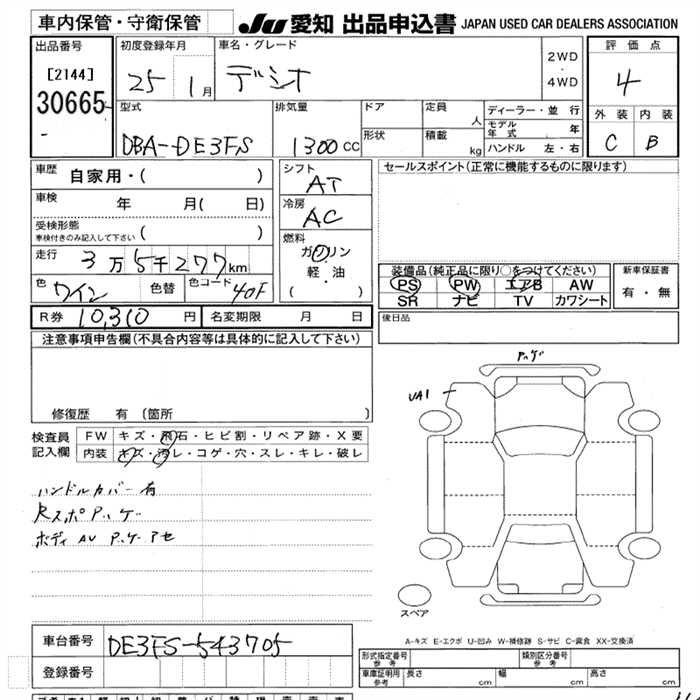 車内保管・守衛保管
JU 愛知 出品申込書 JAPAN USED CAR DEALERS ASSOCIATION
出品番号
[2144]
30665
-
初度登録年月
25 1月
車名・グレード
デミオ
2WD
・
4WD
評価点
4
外装 内装
C B
型式
DBA-DE3FS
排気量
1300cc
ドア
形状
定員
人
積載
kg
ディーラー・並行
モデル年式 年
ハンドル 左・右
車歴 自家用・( )
車検 年 月( 日)
受検形態
車検付きのみ記入して下さい ( )
走行 3万5千277km
色 ワイン 色替 色コード 40F
シフト
AT
冷房
AC
燃料
ガソリン
軽・油
( )
セールスポイント(正常に機能するものに限ります)
装備品(純正品に限り○をつけてください)
PS PW エアB AW
SR ナビ TV カワシート
新車保証書
有・無
R券 10,310円 名変期限 月 日
後日品
注意事項申告欄(不具合内容等は具体的に記入して下さい)
修復歴 有 (箇所 )
検査員記入欄
FW キズ・飛石・ヒビ割・リペア跡・X要
内装 キズ・汚レ・コゲ・穴・スレ・キレ・破レ
ハンドルカバー有
RスポPッケ
ボディ AU Pッケ アセ
Pッケ
UA1
スペア
A-キズ E-エクボ U-凹み W-補修跡 S-サビ C-腐食 XX-交換済
車台番号 DE3FS-543705
登録番号
形式指定番号 参考
類別区分番号 参考
車庫証明用 参考 長さ cm 幅 cm 高さ cm